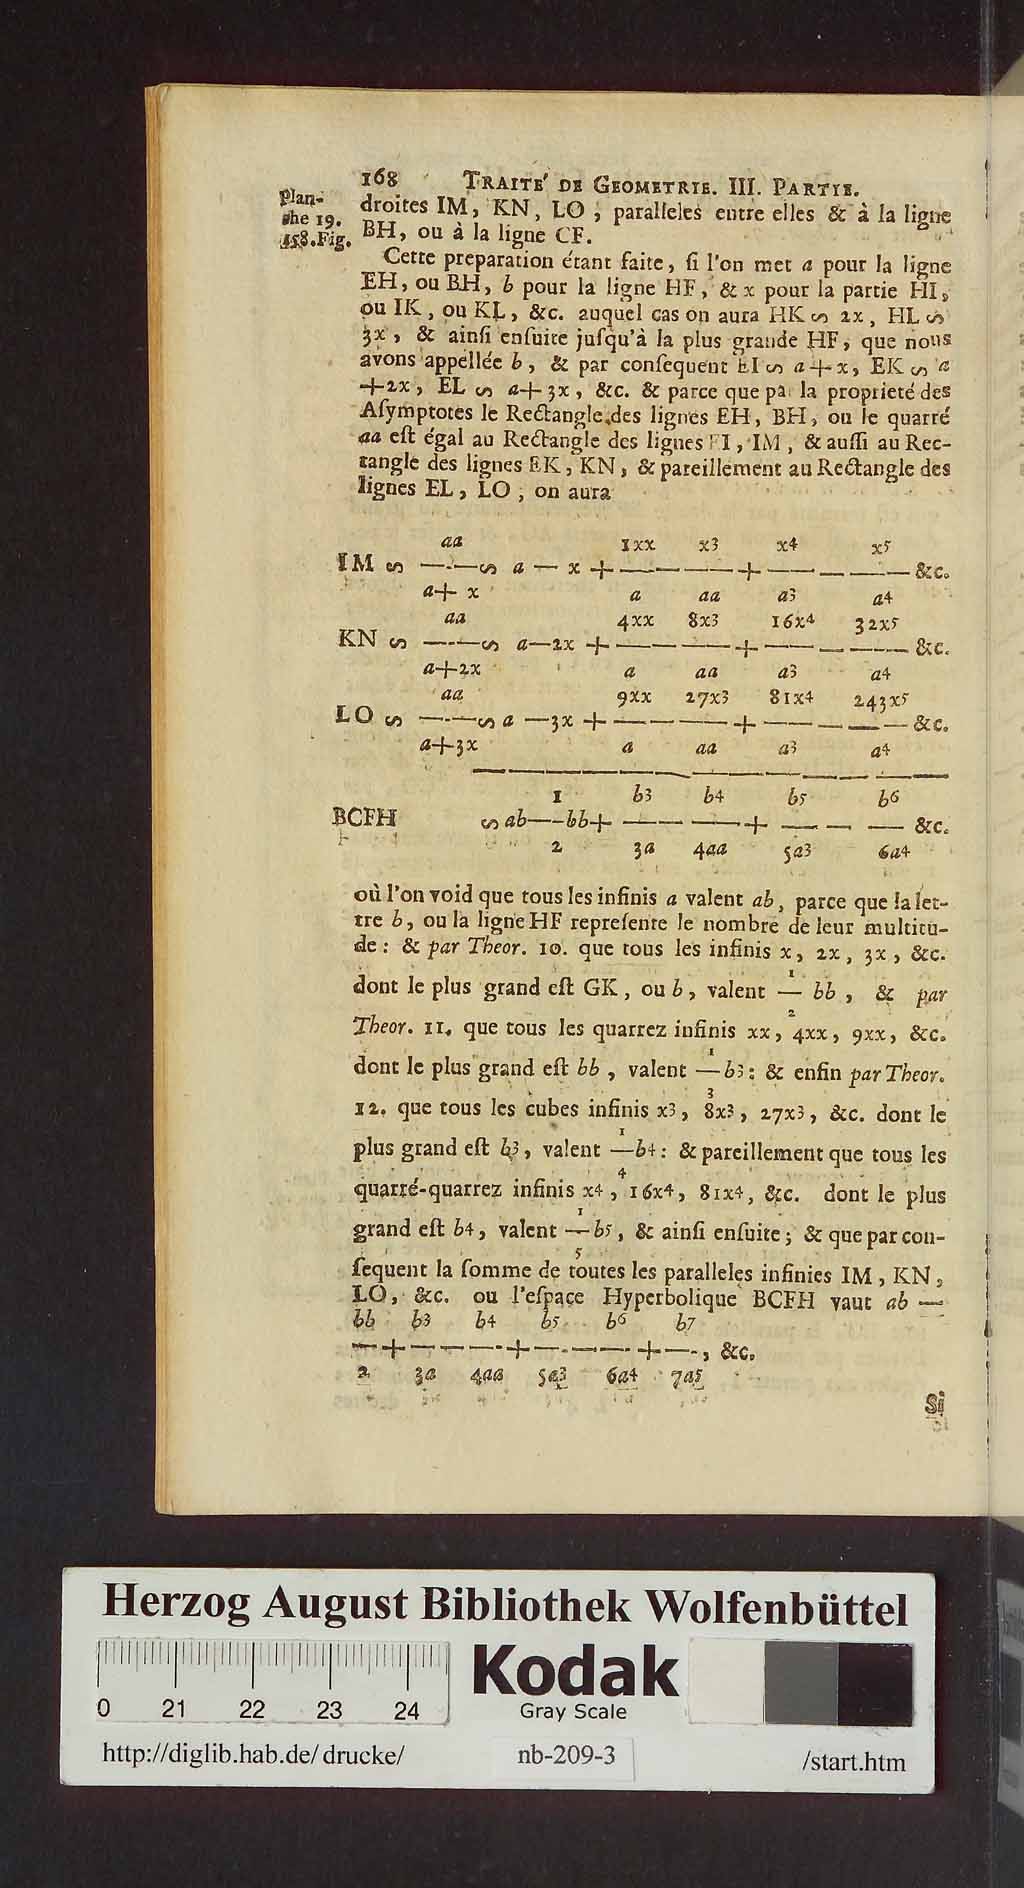 168 TRAITE' DE GEOMETRIE. III. PARTIE.
Plan-
che 19.
158. Fig.
droites IM, KN, LO, paralleles entre elles & à la ligne
BH, ou à la ligne CF.
Cette preparation étant faite, ſi l'on met a pour la ligne
EH, ou BH, b pour la ligne HF, & x pour la partie HI,
ou IK, ou KL, &c. auquel cas on aura HK ∽ 2x, HL ∽
3x, & ainſi enſuite juſqu'à la plus grande HF, que nous
avons appellée b, & par conſequent EI ∽ a+x, EK ∽ a
+2x, EL ∽ a+3x, &c. & parce que pa la proprieté des
Aſymptotes le Rectangle des lignes EH, BH, ou le quarré
aa eſt égal au Rectangle des lignes EI, IM, & auſſi au Rec-
tangle des lignes EK, KN, & pareillement au Rectangle des
lignes EL, LO, on aura
aa 1xx x3 x4 x5
IM ∽ —— ∽ a — x + —— — —— + —— — —— &c.
a+ x a aa a3 a4
aa 4xx 8x3 16x4 32x5
KN ∽ —— ∽ a—2x + —— — —— + —— — —— &c.
a+2x a aa a3 a4
aa 9xx 27x3 81x4 243x5
LO ∽ —— ∽ a —3x + —— — —— + —— — —— &c.
a+3x a aa a3 a4
1 b3 b4 b5 b6
BCFH ∽ ab — — bb + —— — —— + —— — —— &c.
2 3a 4aa 5a3 6a4
où l'on void que tous les infinis a valent ab, parce que la let-
tre b, ou la ligne HF repreſente le nombre de leur multitu-
de: & par Theor. 10. que tous les infinis x, 2x, 3x, &c.
1
dont le plus grand eſt GK, ou b, valent — bb, & par
2
Theor. 11. que tous les quarrez infinis xx, 4xx, 9xx, &c.
1
dont le plus grand eſt bb, valent — b3: & enfin par Theor.
3
12. que tous les cubes infinis x3, 8x3, 27x3, &c. dont le
1
plus grand eſt b3, valent — b4: & pareillement que tous les
4
quarré-quarrez infinis x4, 16x4, 81x4, &c. dont le plus
1
grand eſt b4, valent — b5, & ainſi enſuite; & que par con-
5
ſequent la ſomme de toutes les paralleles infinies IM, KN,
LO, &c. ou l'eſpace Hyperbolique BCFH vaut ab —
bb b3 b4 b5 b6 b7
— + — — — + — — — + —, &c.
2 3a 4aa 5a3 6a4 7a5
Si
Herzog August Bibliothek Wolfenbüttel
0 21 22 23 24
Kodak
Gray Scale
http://diglib.hab.de/drucke/
nb-209-3
/start.htm